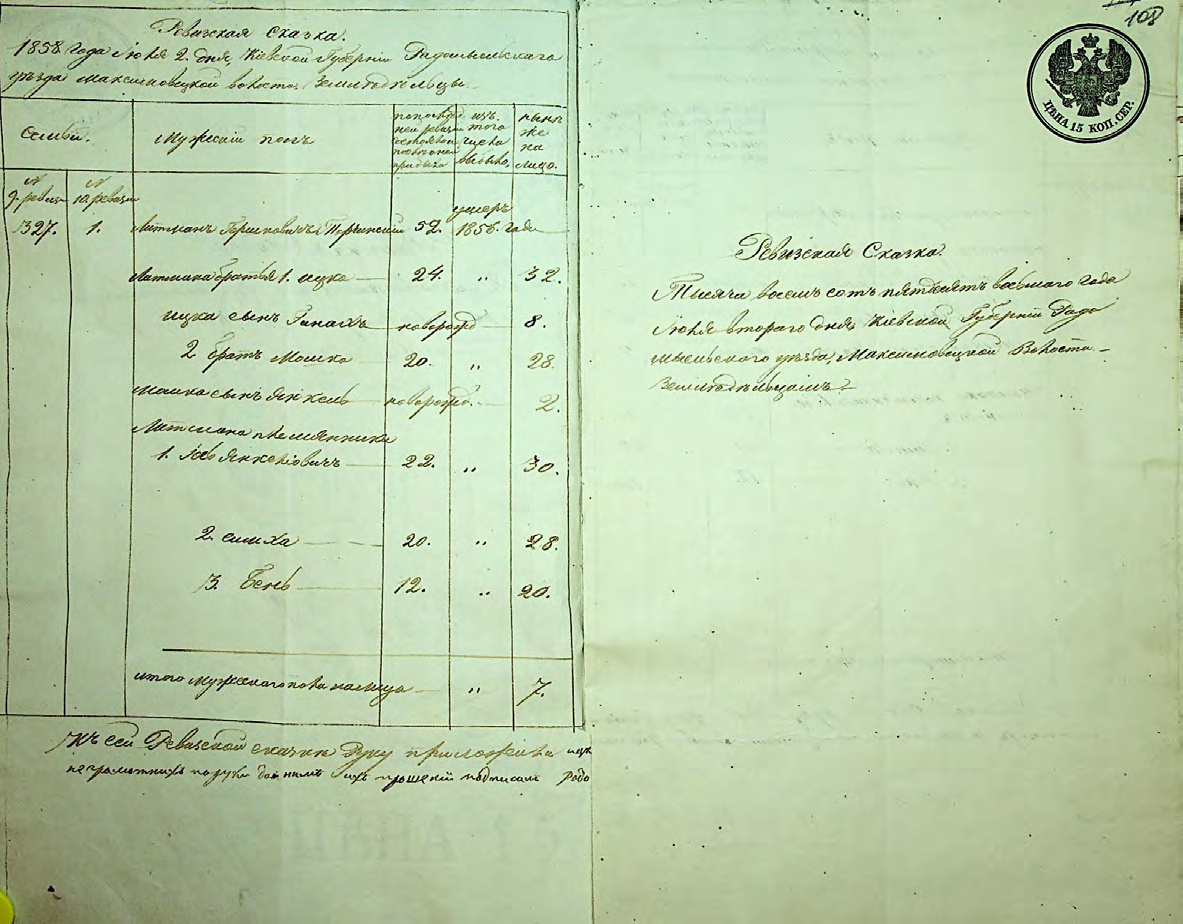 Ревизская Сказка.
1858 года Июня 2. дня, Кіевской Губерніи Радомысльскаго
уѣзда Максимовецкой волости Земледѣльцы
Семьи.
Мужескій полъ
изъ того числа выбыло,
нынѣ же на лицо.
№ 9. ревизіи
№ 10. ревизіи
327. 1. Литманъ Гершковичъ 52. умеръ 1856. года
Литмана братья 1. Ицко 24. „ 32.
Ицка сынъ новорожд 8.
2 братъ Мошко 20. „ 28
Мошка сынъ Янкель новорожд. 2.
Литмана племянники
1. Янкеліовичъ 22. „ 30.
2. Симха 20. „ 28.
3. Бень 12. „ 20.
итого мужескаго пола налицо „ 7.
Къ сей Ревизской сказки руку приложили
неграмотныхъ ихъ прошенію подписалъ
108
ЦѢНА 15 КОП. СЕР.
Ревизская Сказка.
Тысяча восемъ сотъ пятдесятъ восьмаго года
Июня втораго дня, Кіевской Губерніи Радо
мысльского уѣзда, Максимовецкой Волости
Земледѣльцамъ